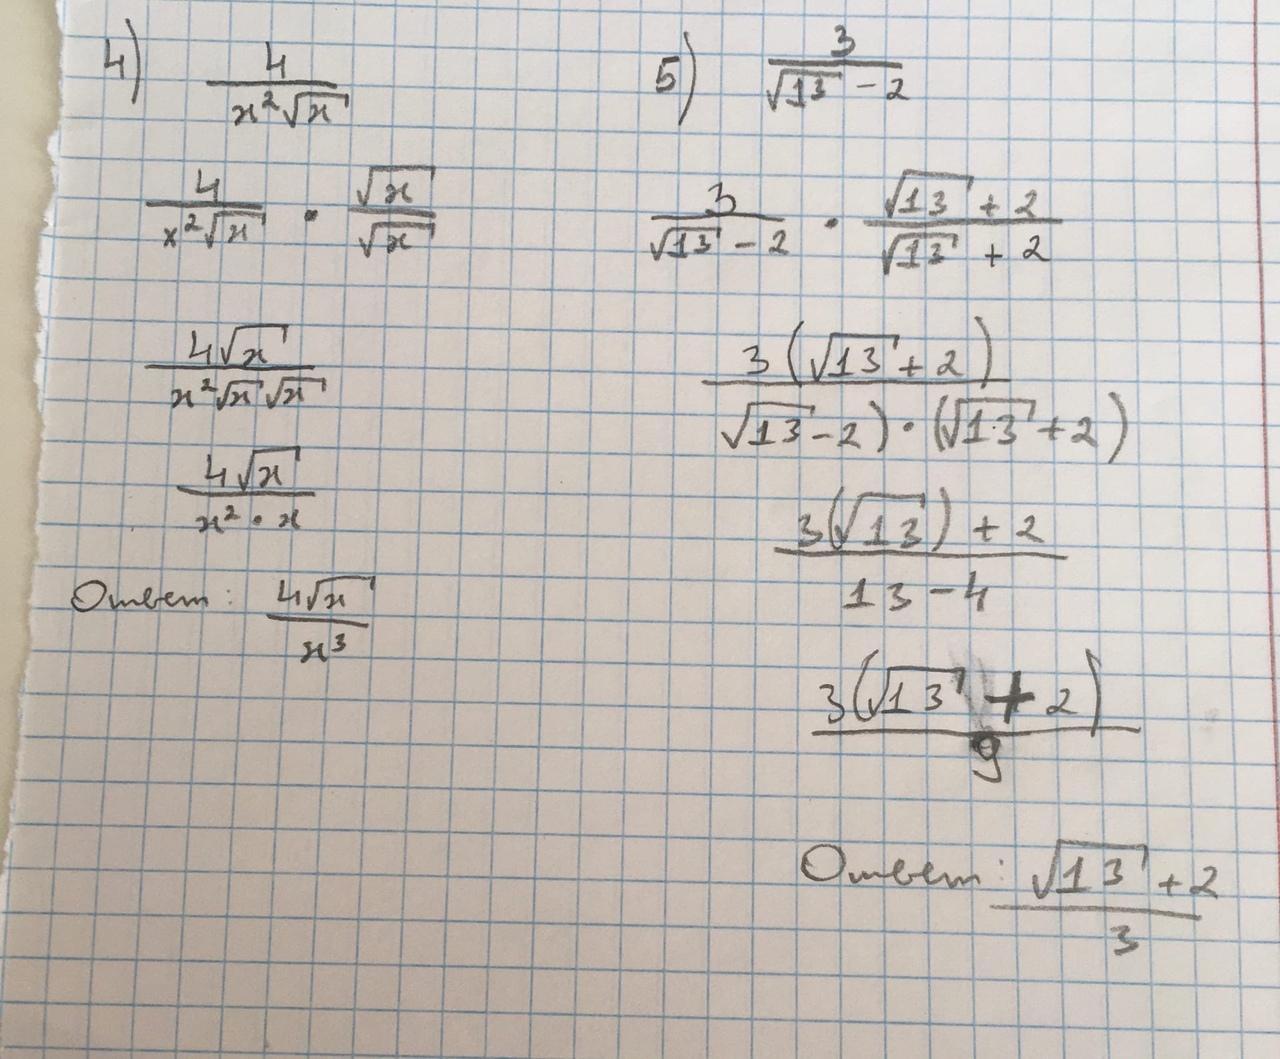 4) 4/(x²√x)
4/(x²√x) · √x/√x
4√x/(x²√x√x)
4√x/(x² · x)
Ответ: 4√x/x³
5) 3/(√13 - 2)
3/(√13 - 2) · (√13 + 2)/(√13 + 2)
3(√13 + 2)/√13 - 2) · (√13 + 2)
3(√13) + 2/13 - 4
3(√13 + 2)/9
Ответ: √13 + 2/3